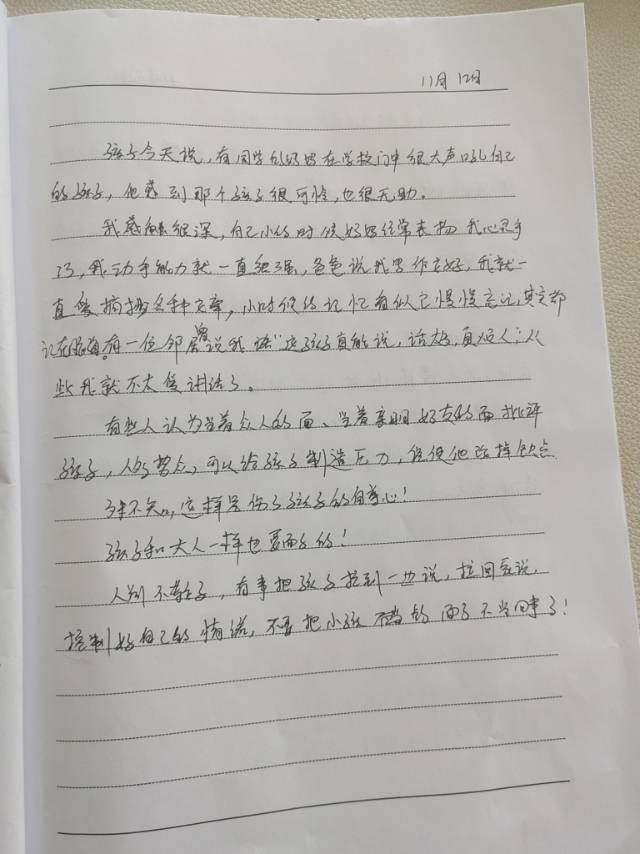 11月12日
孩子今天说，有同学的妈妈在学校门口很大声吼自己
的孩子，他感到那个孩子很可怜，也很无助。
我感触很深，自己小的时候妈妈经常表扬我心灵手
巧，我动手能力就一直很强，爸爸说我写作文好，我就一
直爱摘抄各种文章，小时候的记忆看似已慢慢忘记，其实都
记在眼有一位邻居说我"这孩子真能说，话太，真烦人"从
此我就不太爱讲话了。
有些人认为当着众人的面、当着亲朋好友的面批评
孩子，人多势众，可以给孩子制造压力，促使他改掉缺点
殊不知，这样是伤了孩子的自尊心！
孩子和大人一样也要面子的！
人前不教子，有事把孩子拉到一边说，拉回家说，
控制好自己的情绪，不要把小孩的面子不当回事了！